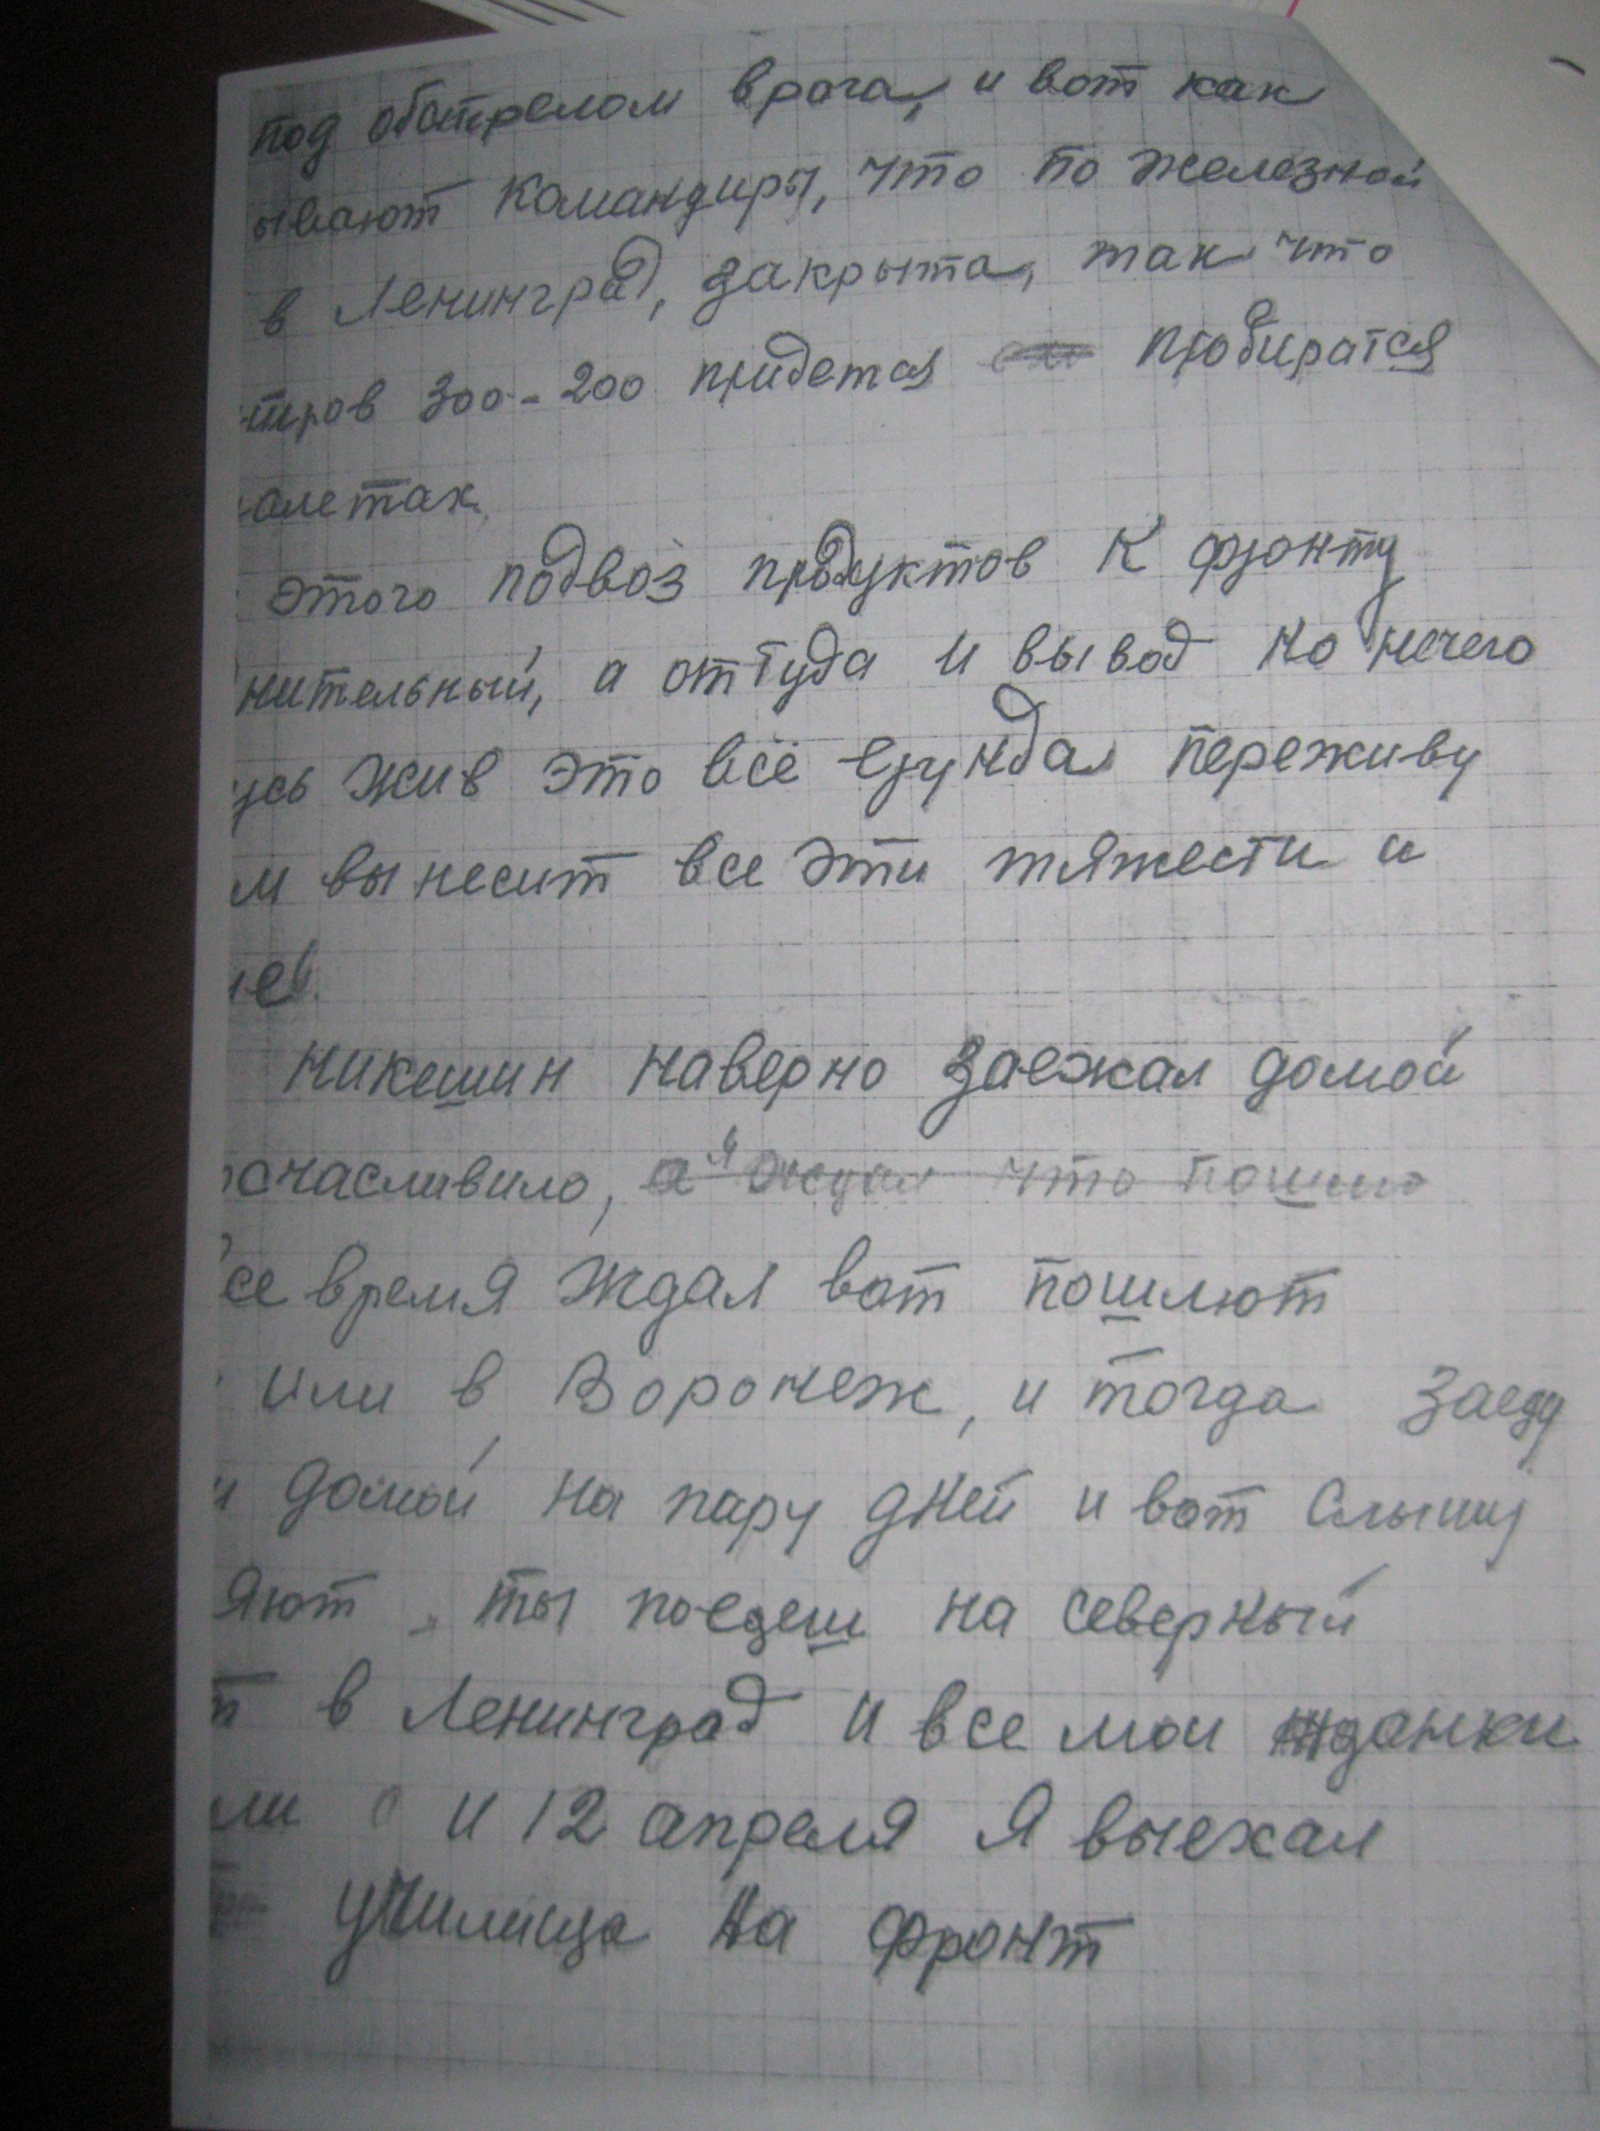 под обстрелом врага, и вот как
ывают командиры, что по железной
в Ленинград, закрыта, так что
тров 300-200 придется пробиратся
олетах
этого подвоз продуктов к фронту
нительный, а оттуда и вывод но нечего
усь жив это всё ерунда переживу
м вынесит все эти тяжести и
никешин наверно заежал домой
счасливило, а я ждал что пошлю
се время ждал вот пошлют
или в Воронеж, и тогда заеду
и домой на пару дней и вот слышу
яют ты поедеш на северный
т в Ленинград и все мои жданки
ли и 12 апреля я выехал
училища на фронт